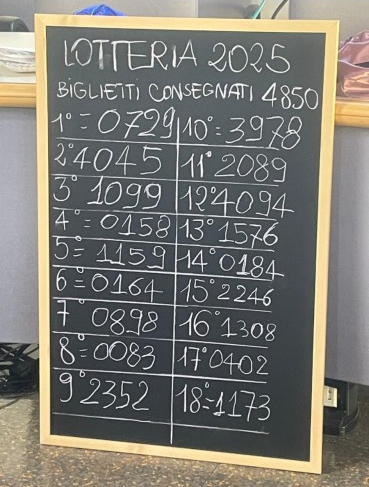 LOTTERIA 2025
BIGLIETTI CONSEGNATI 4850
1°=0729
2°4045
3°1099
4°=0158
5=1159
6°=0164
7°0898
8°=0083
9°2352
10°=3978
11°2089
12°4094
13°1576
14°0184
15°2246
16°1308
17°0402
18°=1173